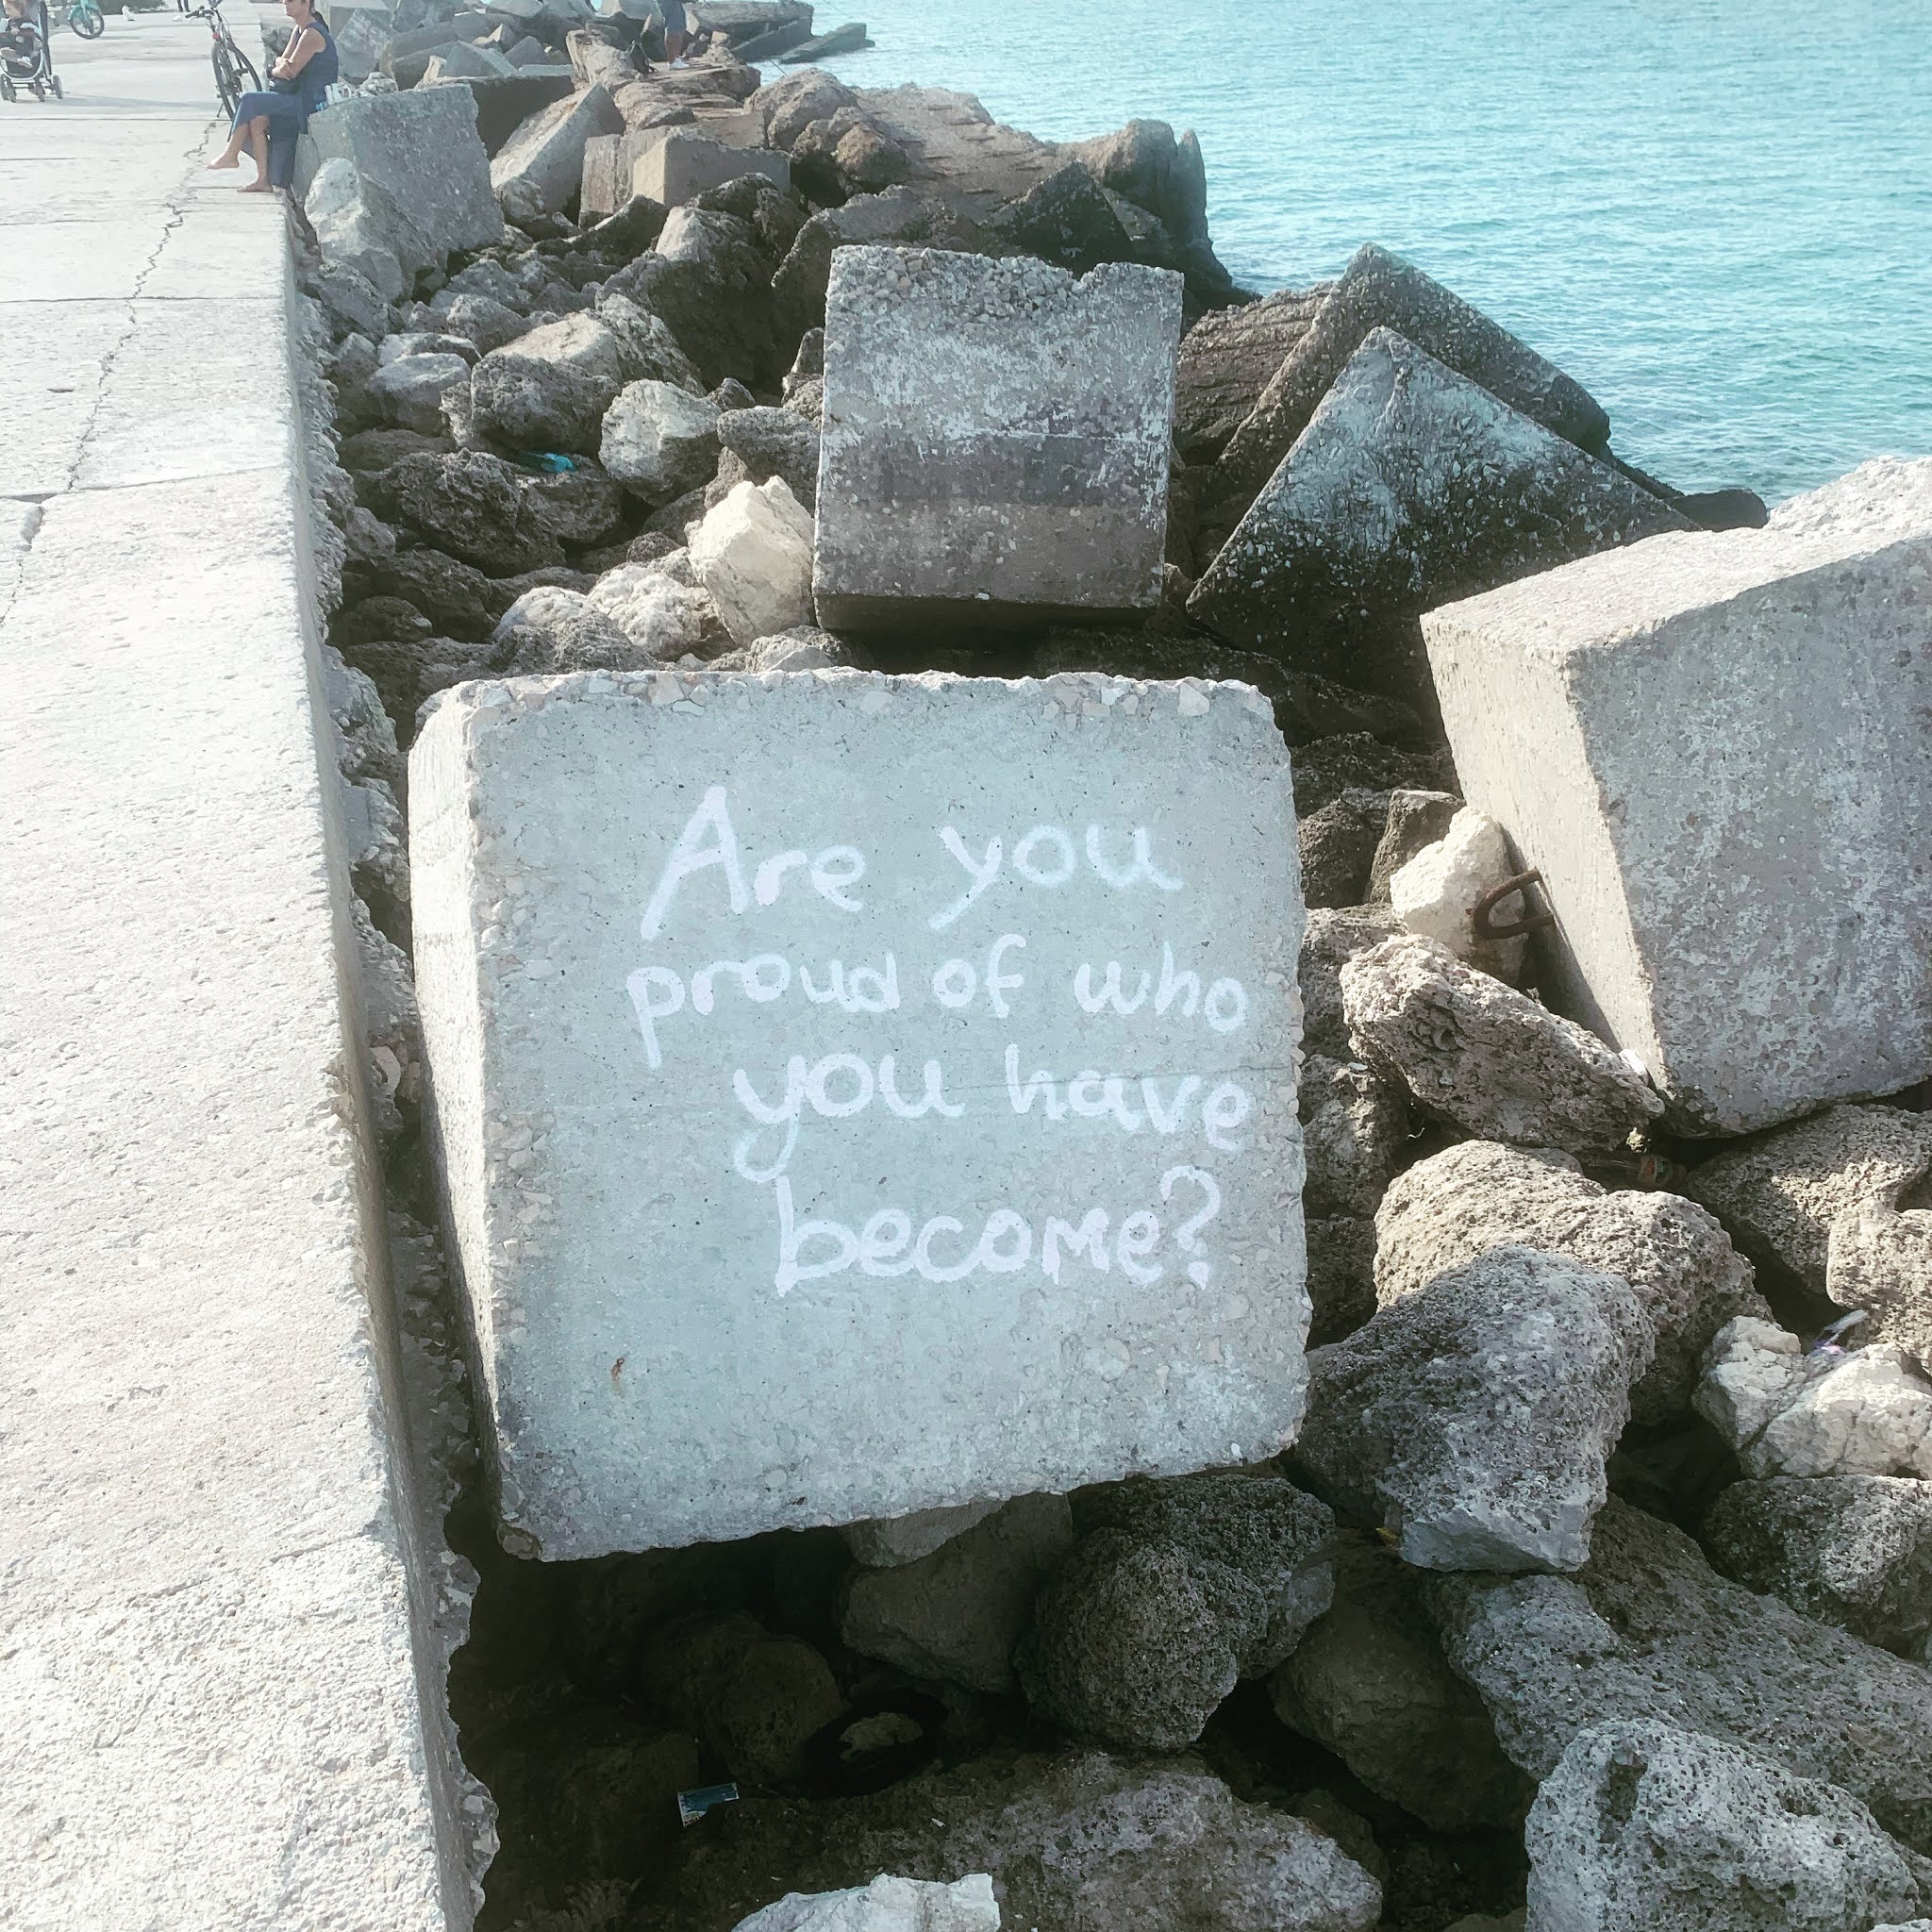 Are you
proud of who
you have
become?